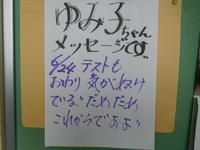 ゆみ子ちゃん
メッセージです。
9/24 テストも
おわり 気がぬけ
ている。だめだめ
これからであるよ